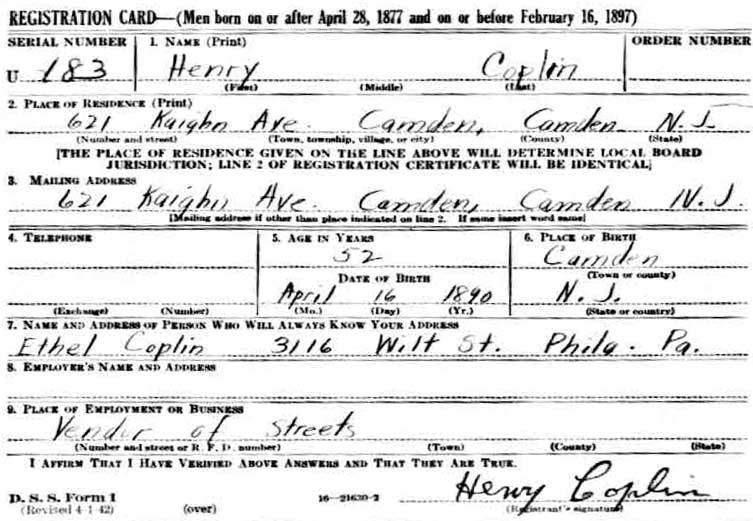 REGISTRATION CARD—(Men born on or after April 28, 1877 and on or before February 16, 1897)
SERIAL NUMBER 1. NAME (Print) ORDER NUMBER
U 183 Henry Coplin
(First) (Middle) (Last)
2. PLACE OF RESIDENCE (Print)
621 Kaighn Ave. Camden, Camden N.J.
(Number and street) (Town, township, village, or city) (County) (State)
[THE PLACE OF RESIDENCE GIVEN ON THE LINE ABOVE WILL DETERMINE LOCAL BOARD
JURISDICTION; LINE 2 OF REGISTRATION CERTIFICATE WILL BE IDENTICAL]
3. MAILING ADDRESS
621 Kaighn Ave. Camden, Camden N.J.
[Mailing address if other than place indicated on line 2. If same insert word same]
4. TELEPHONE 5. AGE IN YEARS 6. PLACE OF BIRTH
52 Camden
DATE OF BIRTH (Town or county)
April 16 1890 N.J.
(Exchange) (Number) (Mo.) (Day) (Yr.) (State or country)
7. NAME AND ADDRESS OF PERSON WHO WILL ALWAYS KNOW YOUR ADDRESS
Ethel Coplin 3116 Wilt St. Phila. Pa.
8. EMPLOYER'S NAME AND ADDRESS
9. PLACE OF EMPLOYMENT OR BUSINESS
Vendor of Streets
(Number and street or R. F. D. number) (Town) (County) (State)
I AFFIRM THAT I HAVE VERIFIED ABOVE ANSWERS AND THAT THEY ARE TRUE.
Henry Coplin
D. S. S. Form 1 16—21630-2
(Revised 4-1-42) (over) (Registrant's signature)